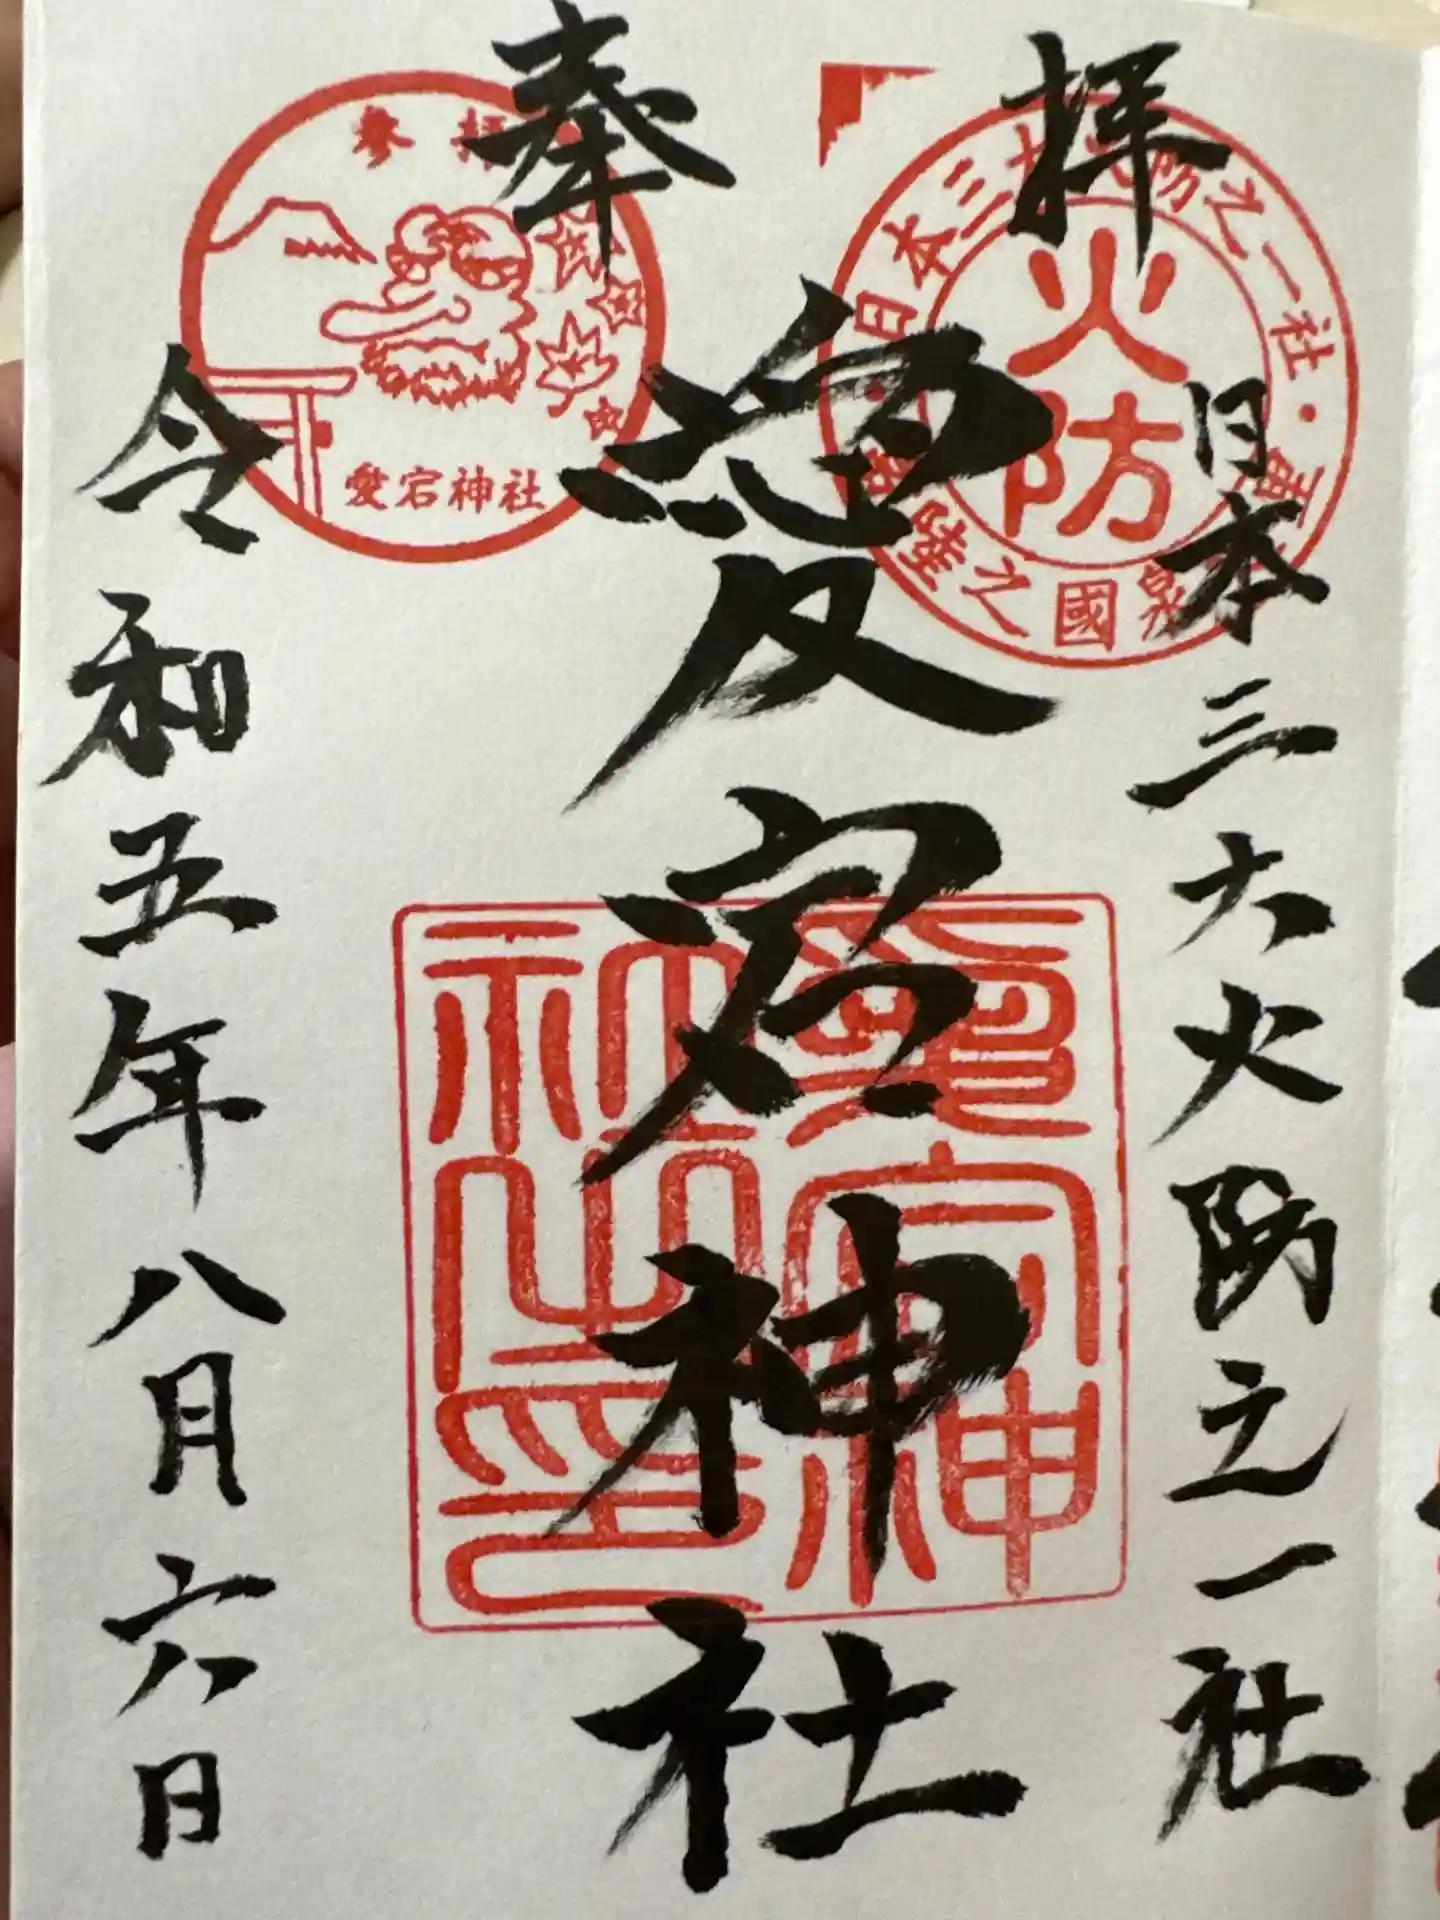 奉拝
日本三大火防之一社
愛宕神社
令和五年八月六日
火防
日本三大火防之一社・
陸之國泉
参拝
愛宕神社
愛宕神
社之印